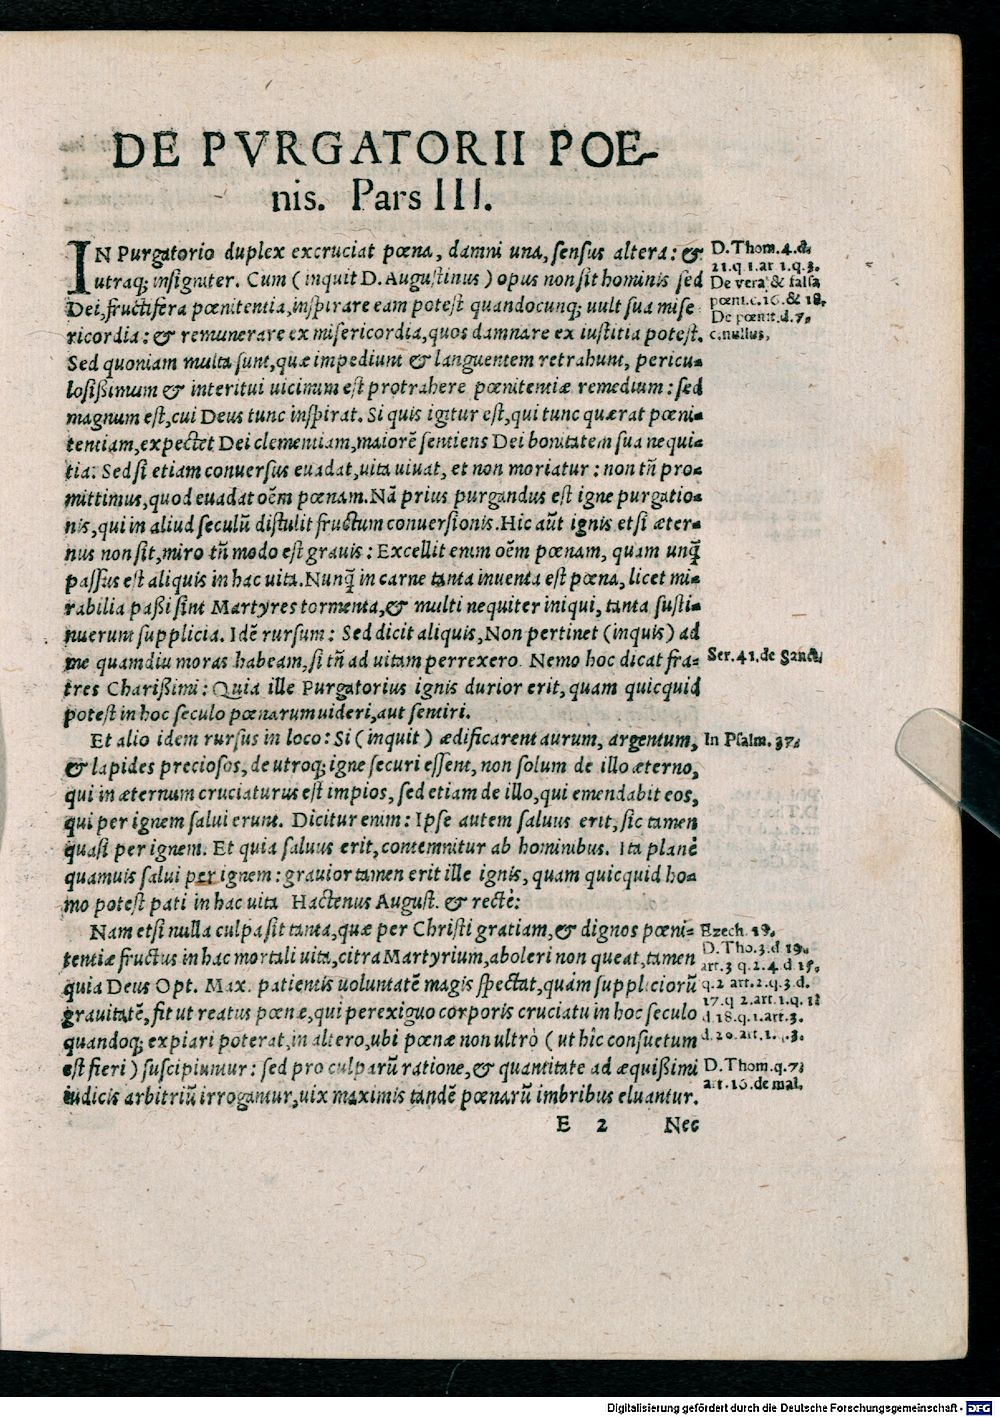 DE PVRGATORII POE-
nis. Pars III.
IN Purgatorio duplex excruciat pœna, damni una, sensus altera: &
utraq; insigniter. Cum (inquit D. Augustinus) opus non sit hominis sed
Dei, fructifera pœnitentia, inspirare eam potest quandocunq; uult sua mise
ricordia: & remunerare ex misericordia, quos damnare ex iustitia potest.
Sed quoniam multa sunt, quæ impediunt & languentem retrahunt, pericu-
losißimum & interitui uicinum est protrahere pœnitentiæ remedium: sed
magnum est, cui Deus tunc inspirat. Si quis igitur est, qui tunc quærat pœni-
tentiam, expectet Dei clementiam, maiorē sentiens Dei bonitatem sua nequi-
tia. Sed si etiam conuersus euadat, uita uiuat, et non moriatur: non tñ pro-
mittimus, quod euadat oēm pœnam. Nā prius purgandus est igne purgatio-
nis, qui in aliud seculū distulit fructum conuersionis. Hic aūt ignis etsi æter-
nus non sit, miro tñ modo est grauis: Excellit enim oēm pœnam, quam unq̃
passus est aliquis in hac uita. Nunq̃ in carne tanta inuenta est pœna, licet mi-
rabilia paßi sint Martyres tormenta, & multi nequiter iniqui, tanta susti-
nuerunt supplicia. Idē rursum: Sed dicit aliquis, Non pertinet (inquis) ad
me quamdiu moras habeam, si tñ ad uitam perrexero. Nemo hoc dicat fra-
tres Charißimi: Quia ille Purgatorius ignis durior erit, quam quicquid
potest in hoc seculo pœnarum uideri, aut sentiri.
Et alio idem rursus in loco: Si (inquit) ædificarent aurum, argentum,
& lapides preciosos, de utroq; igne securi essent, non solum de illo æterno,
qui in æternum cruciaturus est impios, sed etiam de illo, qui emendabit eos,
qui per ignem salui erunt. Dicitur enim: Ipse autem saluus erit, sic tamen
quasi per ignem. Et quia saluus erit, contemnitur ab hominibus. Ita planè
quamuis salui per ignem: grauior tamen erit ille ignis, quam quicquid ho-
mo potest pati in hac uita Hactenus August. & rectè:
Nam etsi nulla culpa sit tanta, quæ per Christi gratiam, & dignos pœni-
tentiæ fructus in hac mortali uita, citra Martyrium, aboleri non queat, tamen
quia Deus Opt. Max. patientis uoluntatē magis spectat, quàm suppliciorū
grauitatē, fit ut reatus pœnæ, qui perexiguo corporis cruciatu in hoc seculo
quandoq; expiari poterat, in altero, ubi pœnæ non ultrò (ut hîc consuetum
est fieri) suscipiuntur: sed pro culparū ratione, & quantitate ad æquißimi
iudicis arbitriū irrogantur, uix maximis tandē pœnarū imbribus eluantur.
E 2 Nec
D. Thom. 4. d.
21. q. 1. ar 1. q. 3.
De vera & falsa
pœni. c. 16. & 18.
De pœnit. d. 7.
c. nullus,
Ser. 41. de Sanct.
In Psalm. 37.
Ezech. 19.
D. Tho. 3. d 19.
art. 3 q. 2. 4. d 15.
q. 2 art. 2. q. 3. d.
17. q 2. art. 1. q. 1
d. 18. q. 1. art. 3.
d. 20. art. 1. q. 3.
D. Thom. q. 7.
art. 10. de mal.
Digitalisierung gefördert durch die Deutsche Forschungsgemeinschaft - DFG